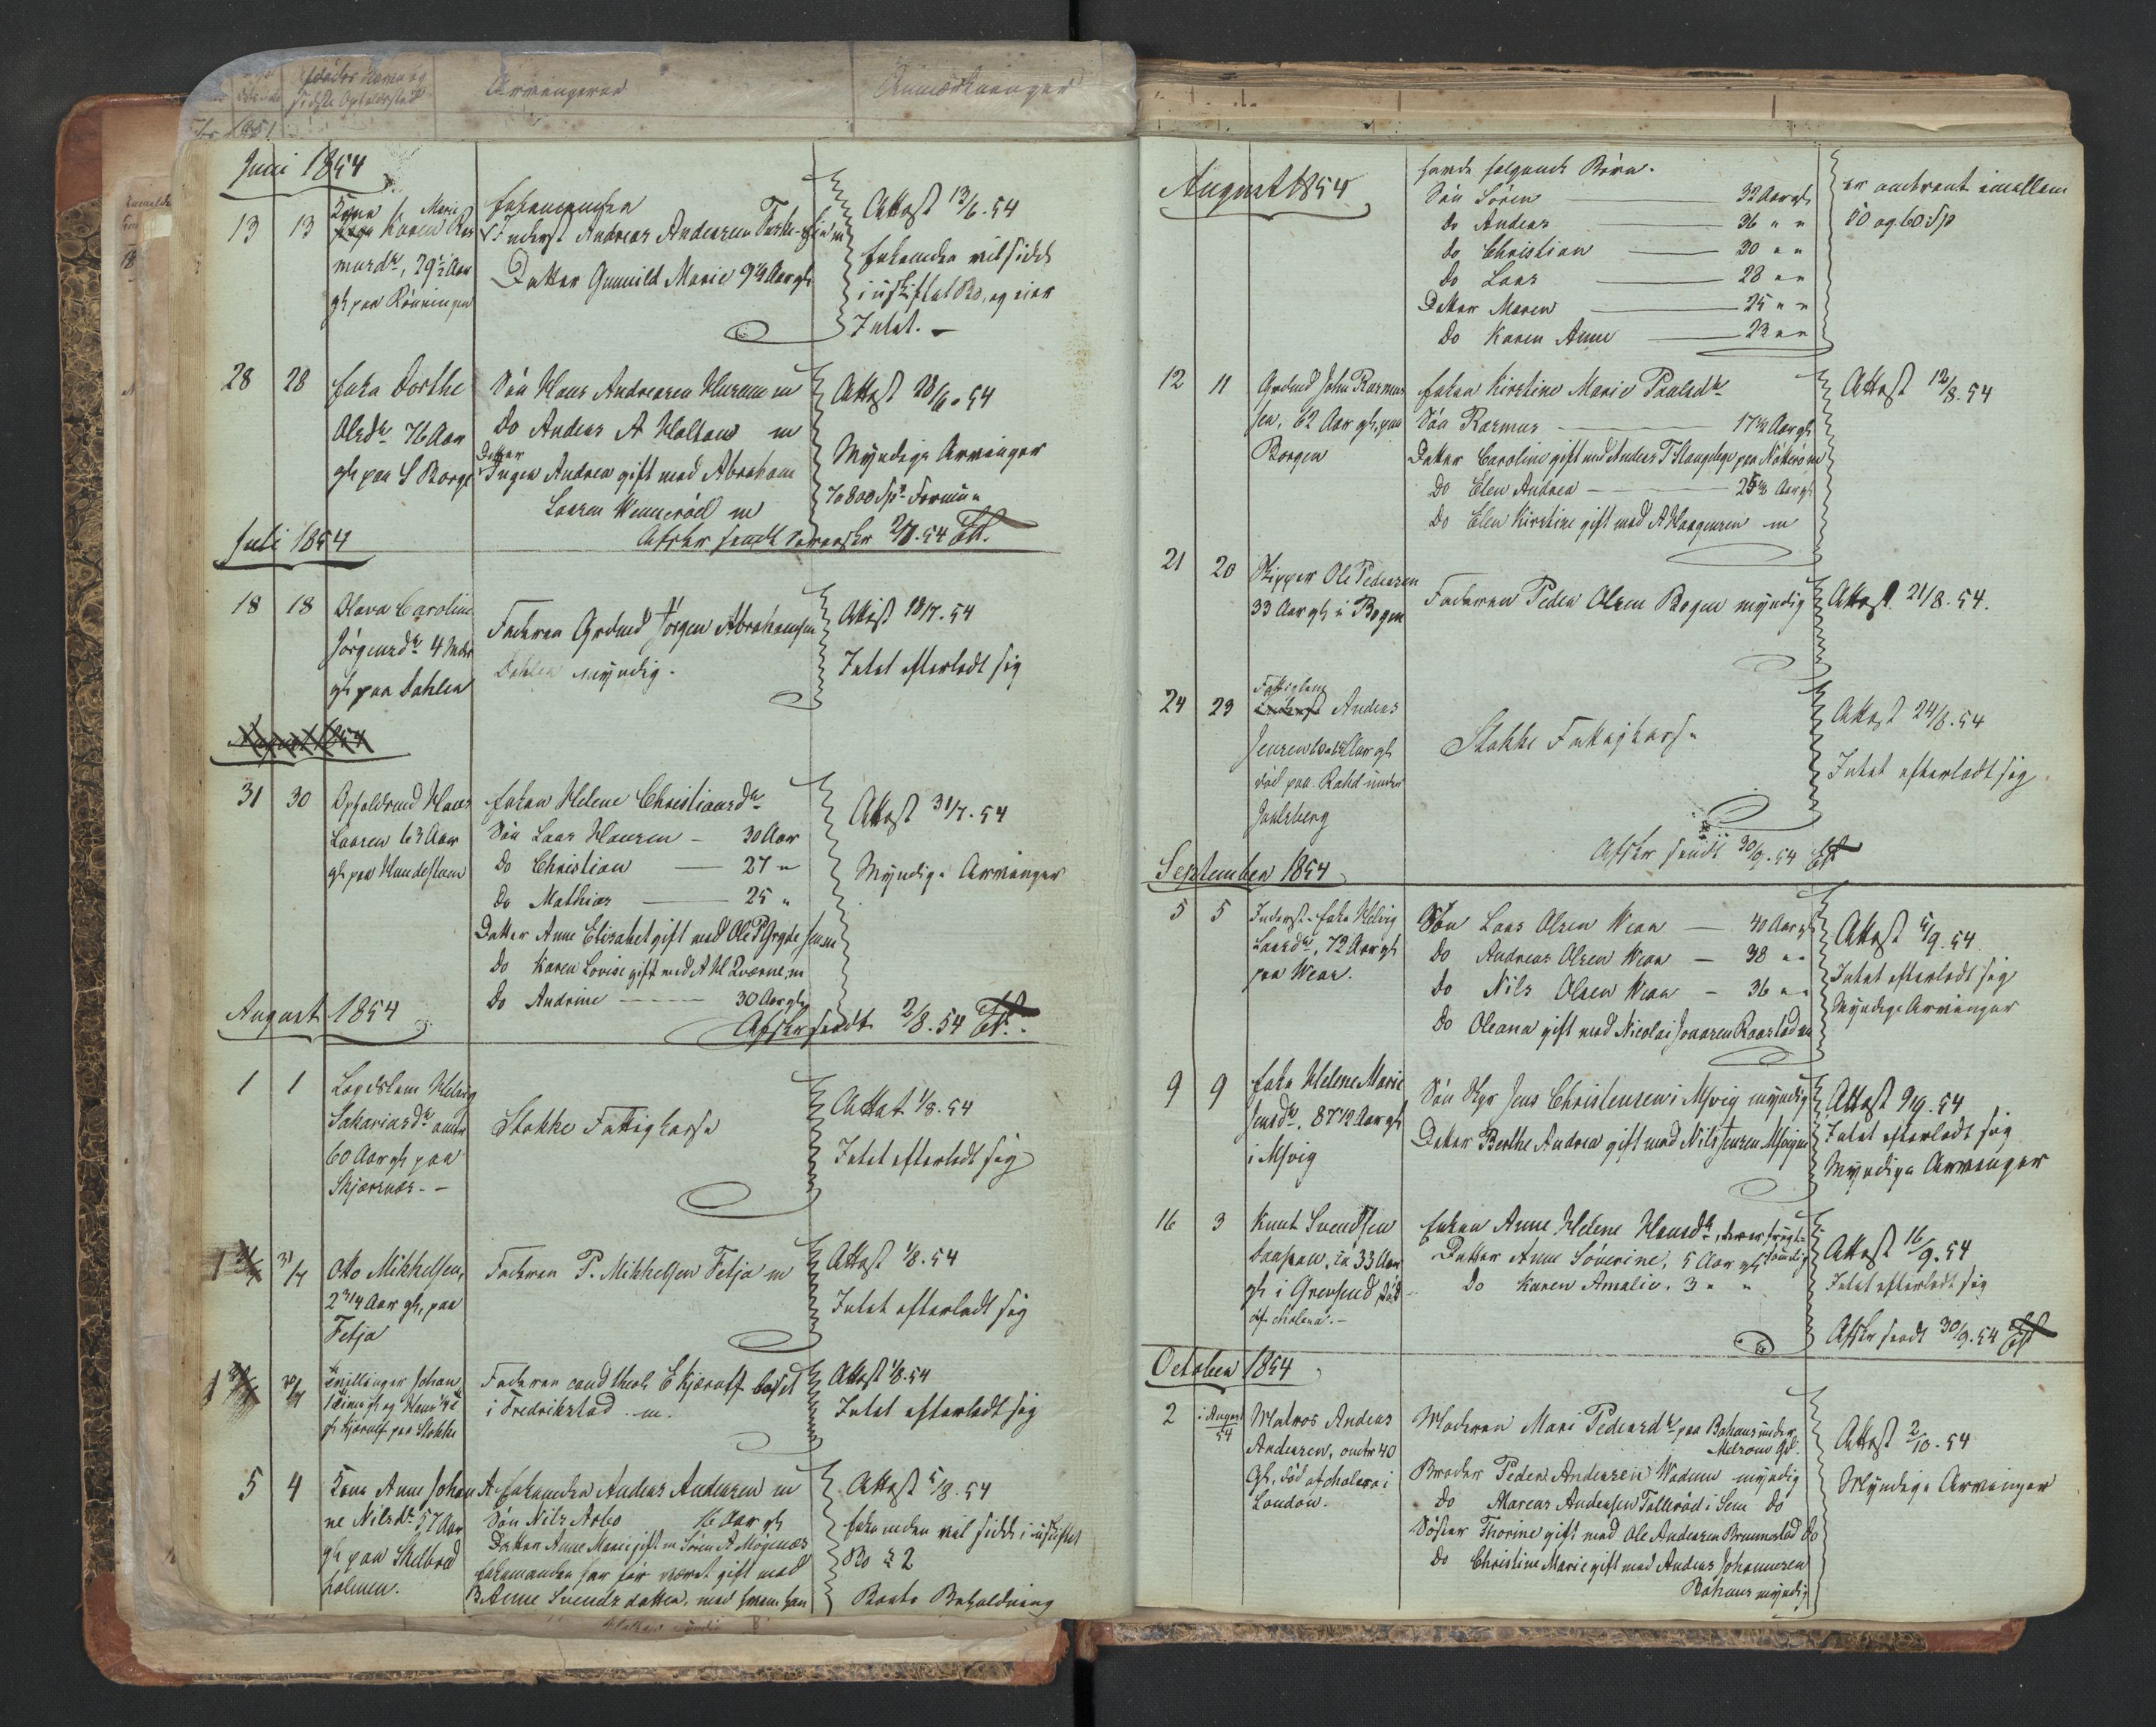 Afdødes Navn og
sidste Opholdssted
Arvingerne
Anmærkninger
1851
Juni 1854
13 13 Kone Karen Marie Ras
musdtr, 29½ Aar
gl paa Rönningen
Enkemanden
Inderst Andreas Andersen
Datter Gunnild Marie 9¼ Aar gl
Attest 13/6. 54
Enkemanden vil sidde
i uskiftet Bo, og eier
Intet.
28 28 Enke Dorthe
Olsdtr 76 Aar
gl paa S Borge
Sön Hans Andreasen Hurum m
Do Anders A Holtan m
Datter
Inger Andrea gift med Abraham
Larsen Wenneröd m
Attest 28/6. 54
Myndige Arvinger
70 800 Sp. Formue
Afskr sendt Sorenskr 2/7. 54
Juli 1854
18 18 Olava Caroline
Jörgensdtr 4 Mdr
gl paa Dahlen
Faderen Grdmd Jörgen Abrahamsen
Dahlen myndig.
Attest 18/7. 54
Intet efterladt sig
August 1854
31 30 Opholdsmd Hans
Larsen 63 Aar
gl paa Hundeslum
Enken Helene Christiansdtr
Sön Lars Hansen - 30 Aar
Do Christian - 27 "
Do Mathias - 25 "
Datter Anne Elisabet gift med Ole
Do Karen Lovise gift med A H Qværne, m
Do Andrine - 30 Aar gl
Attest 31/7. 54
Myndige Arvinger
Afskr sendt 2/8. 54
August 1854
1 1 Lægdslem Helvig
Sakariasdtr omtr
60 Aar gl paa
Skjærsnæs.
Stokke Fattigkasse
Attest 1/8. 54
Intet efterladt sig
1 31/7 Otto Mikkelsen,
2 3/4 Aar gl, paa
Fetja
Faderen P. Mikkelsen Fetja m
Attest 1/8. 54
Intet efterladt sig
1 Tvillinger Johan
1 Time gl og Hans
gl Kjerulf paa Stokke
Faderen cand theol E Kjerulf bosat
i Fredrikstad. m.
Attest 1/8. 54
Intet efterladt sig
5 4 Kone Anne Johan
ne Nilsdtr 57 Aar
gl paa Skelbred
holmen.
A Enkemanden Anders Andersen m
Sön Nils Arbo 16 Aar gl
Datter Anne Marie gift m Sören A Mögenæs
Enkemanden har för været gift med
B. Anne Svendsdatter, med hvem han
Attest 5/8. 54
Enkemanden vil sidde i uskiftet
Bo 2
Boets Beholdning
August 1854
havde følgende Børn.
Sön Sören - 32 Aar gl
Do Anders - 36 " "
Do Christian - 30 " "
Do Lars - 28 " "
Datter Maren - 25 " "
Do Karen Anne - 23 " "
er omtrent imellem
50 og 60 Sp
12 11 Grdmd John Rasmus
sen, 62 Aar gl, paa
Borgen
Enken Kirstine Marie Paulsdtr
Sön Rasmus - 17½ Aar gl
Datter Caroline gift med Anders T Slangehege paa Nötterö m
Do Elen Andrea - 25½ Aar gl
Do Elen Kirstine gift med A Haagensen m
Attest 12/8. 54
21 20 Skipper Ole Pedersen
33 Aar gl i Bogen
Faderen Peder Olsen Bogen myndig
Attest 21/8. 54.
24 23 Fattiglem
Anders
Jensen Aar gl
död paa Rahd under
Jarlsberg
Stokke Fattigkasse
Attest 24/8. 54
Intet efterladt sig
Afskr sendt 30/9. 54
September 1854
5 5 Inderst-Enke Helvig
Larsdtr, 72 Aar gl
paa Wear.
Sön Lars Olsen Wear - 40 Aar gl
Do Andreas Olsen Wear - 38 " "
Do Nils Olsen Wear - 36 " "
Do Oleana gift med Nicolai Jonasen Raastad m
Attest 5/9. 54
Intet efterladt sig
Myndige Arvinger
9 9 Enke Helene Marie
Jensdtr, 87½ Aar gl
i Msvig
Sön Hgr Jens Christensen i Msvig myndig
Datter Berthe Andrea gift med Nils Jensen Msvig m
Attest 9/9. 54
Intet efterladt sig
Myndige Arvinger
16 3 Knut Svendsen
ca 33 Aar
gl i Grevsund, död
af cholera.
Enken Anne Helene Hansdtr, er frugt=
sommelig
Datter Anne Sörine, 5 Aar gl
Do Karen Amalie. 3 " "
Attest 16/9. 54
Intet efterladt sig
Afskr sendt 30/9. 54
October 1854
2 i August
54
Matros Anders
Andersen, omtr 40
gl, död af cholera i
London.
Moderen Mari Pedersdtr paa Bahaus under
Melsom Gd.
Broder Peder Andersen Wadum myndig
Do Marcus Andersen Tollerød i Sem Do
Söster Thorine gift med Ole Andersen Brunnestad Do
Do Christine Marie gift med Anders Johannesen
Bahaus myndig
Attest 2/10. 54
Myndige Arvinger